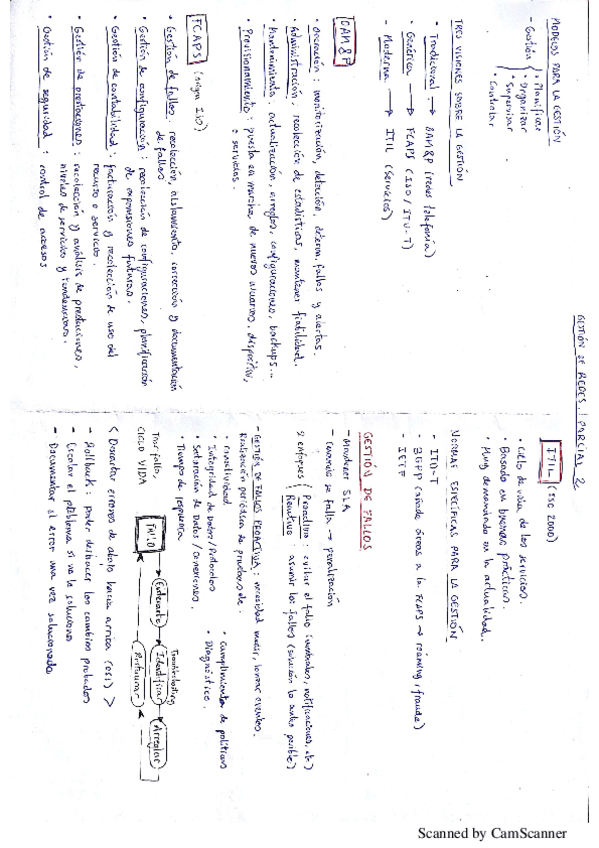 GESTIÓN DE REDES. PARCIAL 2
MODELOS PARA LA GESTIÓN
- Gestión
· Planificar
· Organizar
· Supervisar
· Controlar
TRES VISIONES SOBRE LA GESTIÓN
· Tradicional → OAM&P (redes telefonía)
· Genérica → FCAPS (ISO / ITU-T)
- Moderna → ITIL (Servicios)
OAM&P
· Operación: monitorización, detección, determ. fallos y alertas.
· Administración: recolección de estadísticas, mantener fiabilidad.
· Mantenimiento: actualización, arreglos, configuraciones, backups...
· Provisionamiento: puesta en marcha de nuevos usuarios, dispositivos,
o servicios.
FCAPS (origen ISO)
· Gestión de fallos: recolección, aislamiento, corrección y documentación
de fallos
· Gestión de configuración: recolección de configuraciones, planificación
de expansiones futuras.
· Gestión de contabilidad: facturación y recolección de uso del
recurso o servicio.
· Gestión de prestaciones: recolección y análisis de prestaciones,
niveles de servicios y tendencias.
· Gestión de seguridad: control de accesos
ITIL (ISO 2000)
· Ciclo de vida de los servicios.
· Basado en buenas prácticas.
· Muy demandado en la actualidad.
NORMAS ESPECÍFICAS PARA LA GESTIÓN
- ITU-T
- 3GPP añade áreas a la FCAPS → roaming, fraude)
- IETF
GESTIÓN DE FALLOS
- Mantener SLA
- Cuando se falla → penalización
2 enfoques
Proactiva: evitar el fallo (umbrales, notificaciones, etc)
Reactiva: asumir los fallos (solución lo antes posible)
- GESTIÓN DE FALLOS PROACTIVA: necesidad medir, lanzar eventos.
Realización periódica de pruebas de:
· Conectividad
· Integridad de datos / Protocolos
· Saturación de Datos / conexiones.
· Tiempo de respuesta
· Cumplimiento de políticas
· Diagnóstico.
Tras fallo,
CICLO VIDA
Troubleshooting
FALLO
Enterarte
Identificar
Arreglar
Restaurar
< Descartar errores de abajo hacia arriba (OSI) >
- Rollback: poder deshacer los cambios probados
- Escalar el problema si no lo soluciono
- Documentar el error una vez solucionado
Scanned by CamScanner